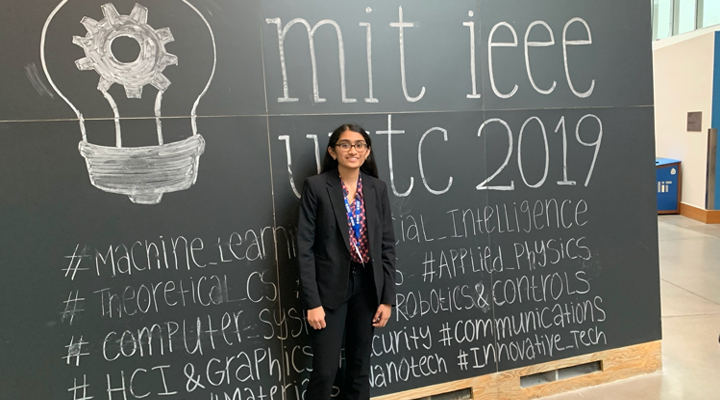 mit ieee
tc 2019
#Machine_Learn Intelligence
#Theoretical_CS #Applied_Physics
#Computer_Sys Robotics&Controls
#HCI&Graphics #Communications
Nanotech #Innovative_Tech